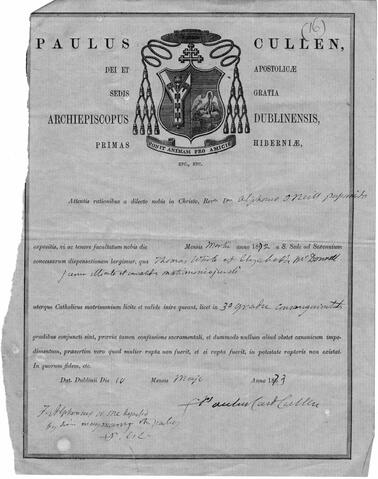 (16)
PAULUS CULLEN,
DEI ET APOSTOLICÆ
SEDIS GRATIA
ARCHIEPISCOPUS DUBLINENSIS,
PRIMAS HIBERNIÆ,
PONIT ANIMAM PRO AMICIS
ETC., ETC.
Attentis rationibus a dilecto nobis in Christo, Rev Alphonso O'Neill
expositis, vi ac tenore facultatum nobis die Mensis Martii anno 1872 a S. Sede ad Sexennium
concessarum dispensationem largimur, qua Thomas White et Elizabeth McDonnell
uterque Catholicus matrimonium licite et valide inire queant, licet in 3o gradu consanguinitatis
prædictis conjuncti sint, præviâ tamen confessione sacramentali, et dummodo nullum aliud obstet canonicum impe-
dimentum, præsertim vero quod mulier rapta non fuerit, et si rapta fuerit, in potestate raptoris non existat.
In quorum fidem, etc.
Dat. Dublinii Die 10 Mensis Maji Anno 1873
Paulus Card Cullen
Fr Alphonsus
by